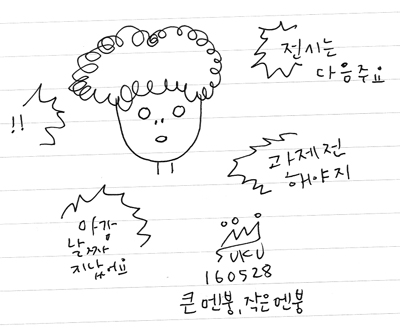 전시는
다음주요
!!
과제전
해야지
마감
날짜
지났어요
SUKU
160528
큰멘붕, 작은멘붕